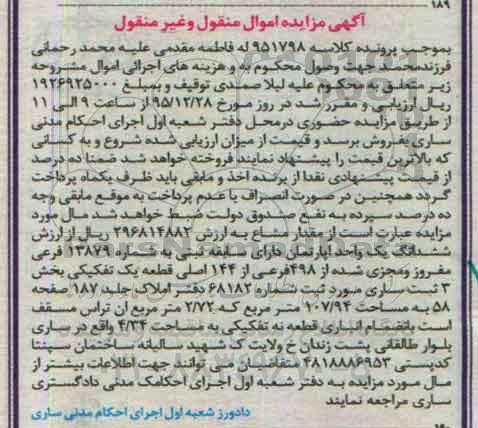 ۱۸۹
آگهی مزایده اموال منقول وغیر منقول
بموجب پرونده کلاسه ۹۵۱۷۹۸ له فاطمه مقدمی علیه محمد رحمانی
فرزندمحمد جهت وصول محکوم به و هزینه های اجرائی اموال مشروحه
زیر متعلق به محکوم علیه لیلا صمدی توقیف و بمبلغ ۱۹۲۶۹۲۵۰۰۰
ریال ارزیابی و مقرر شد در روز مورخ ۹۵/۱۲/۲۸ از ساعت ۹ الی ۱۱
از طریق مزایده حضوری درمحل دفتر شعبه اول اجرای احکام مدنی
ساری بفروش برسد و قیمت از میزان ارزیابی شده شروع و به کسانی
که بالاترین قیمت را پیشنهاد نمایند فروخته خواهد شد ضمنا ده درصد
از قیمت پیشنهادی نقدا از برنده اخذ و مابقی باید ظرف یکماه پرداخت
گردد همچنین در صورت انصراف یا عدم پرداخت به موقع مابقی وجه
ده درصد سپرده به نفع صندوق دولت ضبط خواهد شد مال مورد
مزایده عبارت است از مقدار مشاع به ارزش ۲۹۶۸۱۴۸۸۲ ریال از ارزش
ششدانگ یک واحد آپارتمان دارای سابقه ثبتی به شماره ۱۳۸۷۹ فرعی
مفروز ومجزی شده از ۴۹۸فرعی از ۱۴۴ اصلی قطعه یک تفکیکی بخش
۳ ثبت ساری مورد ثبت شماره ۶۸۱۸۲ دفتر املاک جلد ۱۸۷ صفحه
۵۸ به مساحت ۱۰۷/۹۴ متر مربع که ۲/۷۲ متر مربع ان تراس مسقف
است بانضمام انباری قطعه نه تفکیکی به مساحت ۴/۳۴ واقع در ساری
بلوار طالقانی پشت زندان خ ولایت ک شهید سالیانه ساختمان سپنتا
کدپستی ۴۸۱۸۸۸۶۹۵۳ متقاضیان می توانند جهت اطلاعات بیشتر از
مال مورد مزایده به دفتر شعبه اول اجرای احکامک مدنی دادگستری
ساری مراجعه نمایند
دادورز شعبه اول اجرای احکام مدنی ساری